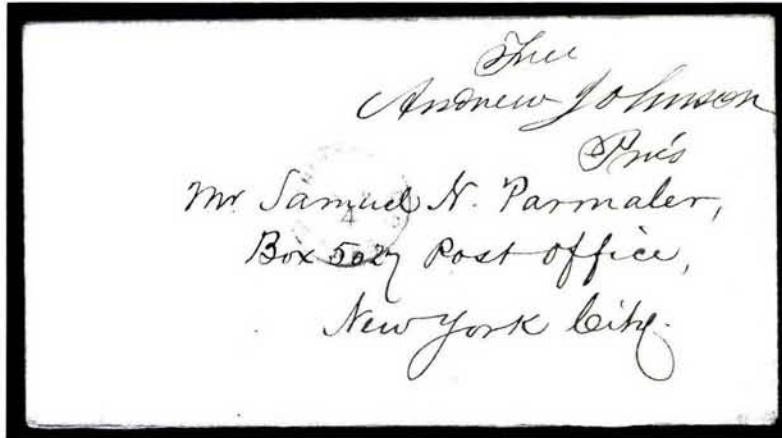 Free
Andrew Johnson
Pres
Mr Samuel N. Parmaler,
Box 5027 Post Office,
New York City.
4